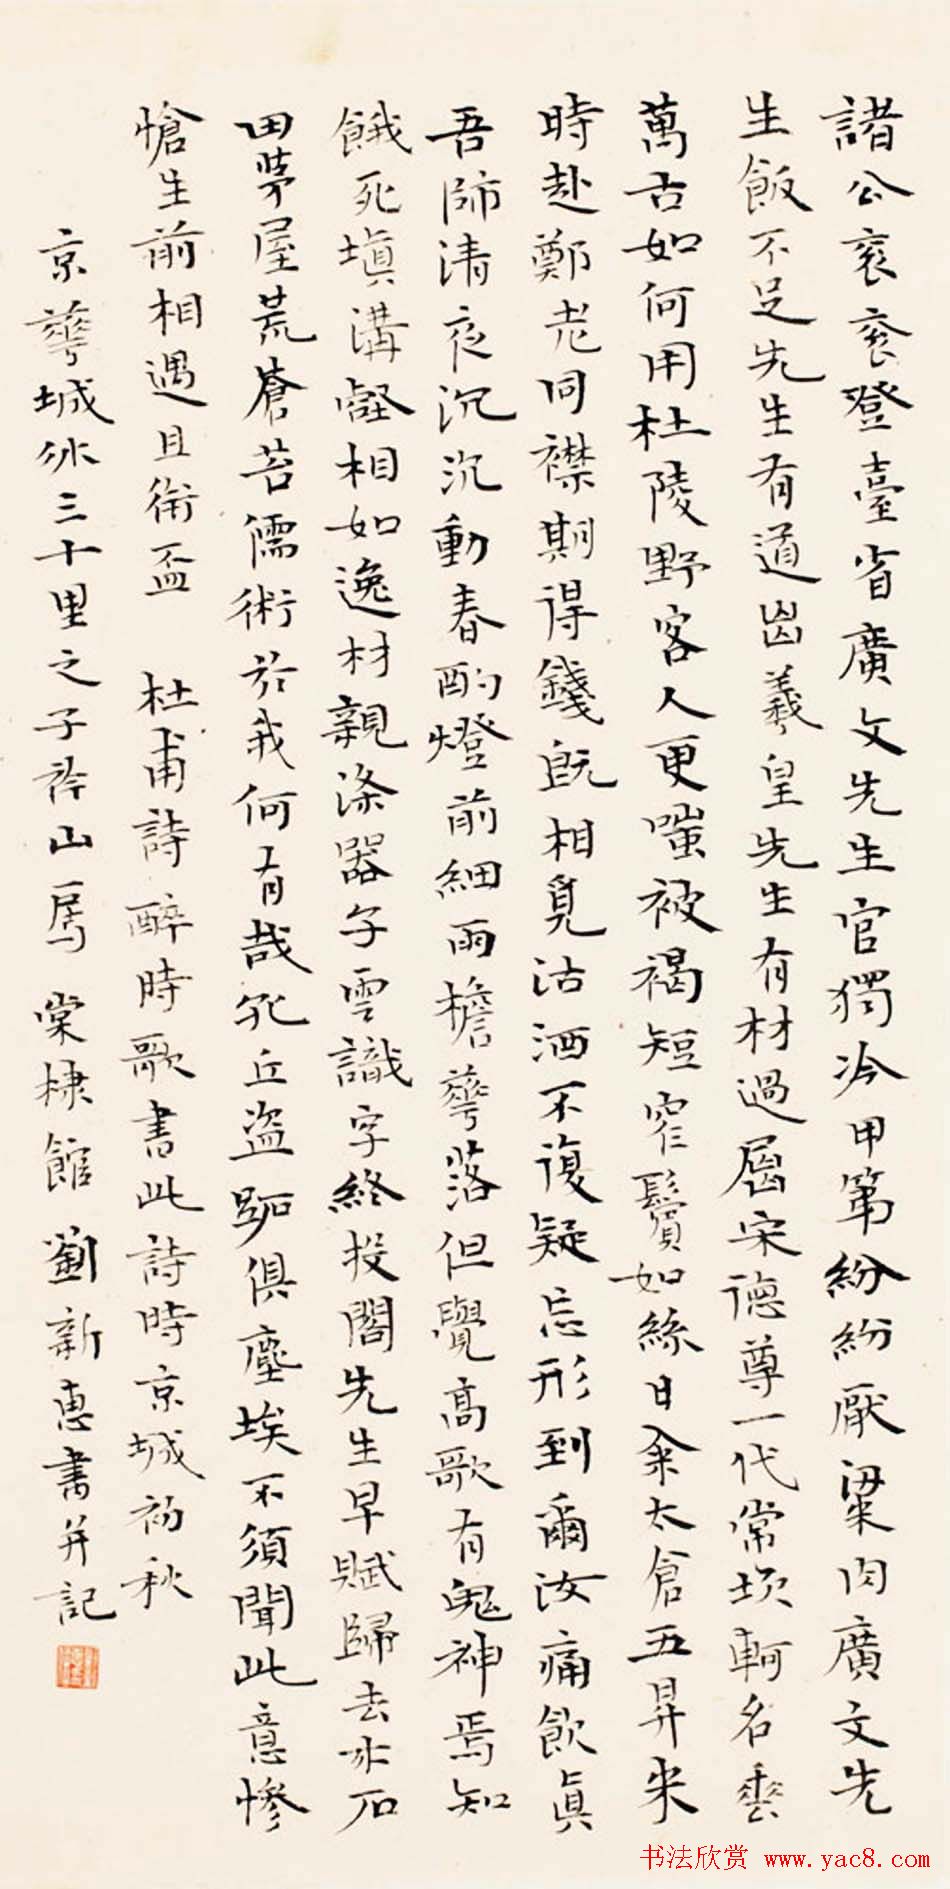 諸公衮衮登臺省廣文先生官獨冷甲第紛紛厭粱肉廣文先
生飯不足先生有道出羲皇先生有材過屈宋德尊一代常坎軻名垂
萬古如何用杜陵野客人更嗤被褐短窄鬢如絲日籴太倉五昇米
時赴鄭老同襟期得錢既相覓沽酒不復疑忘形到爾汝痛飲真
吾師清夜沉沉動春酌燈前細雨檐華落但覺高歌有鬼神焉知
餓死填溝壑相如逸材親滌器子雲識字終投閣先生早賦歸去來石
田茅屋荒蒼苔儒術於我何有哉孔丘盜跖俱塵埃不須聞此意慘
愴生前相遇且銜盃 杜甫詩醉時歌書此詩時京城初秋
京華城外三十里之子許山居 棠棣館 劉新惠書并記
书法欣赏 www.yac8.com